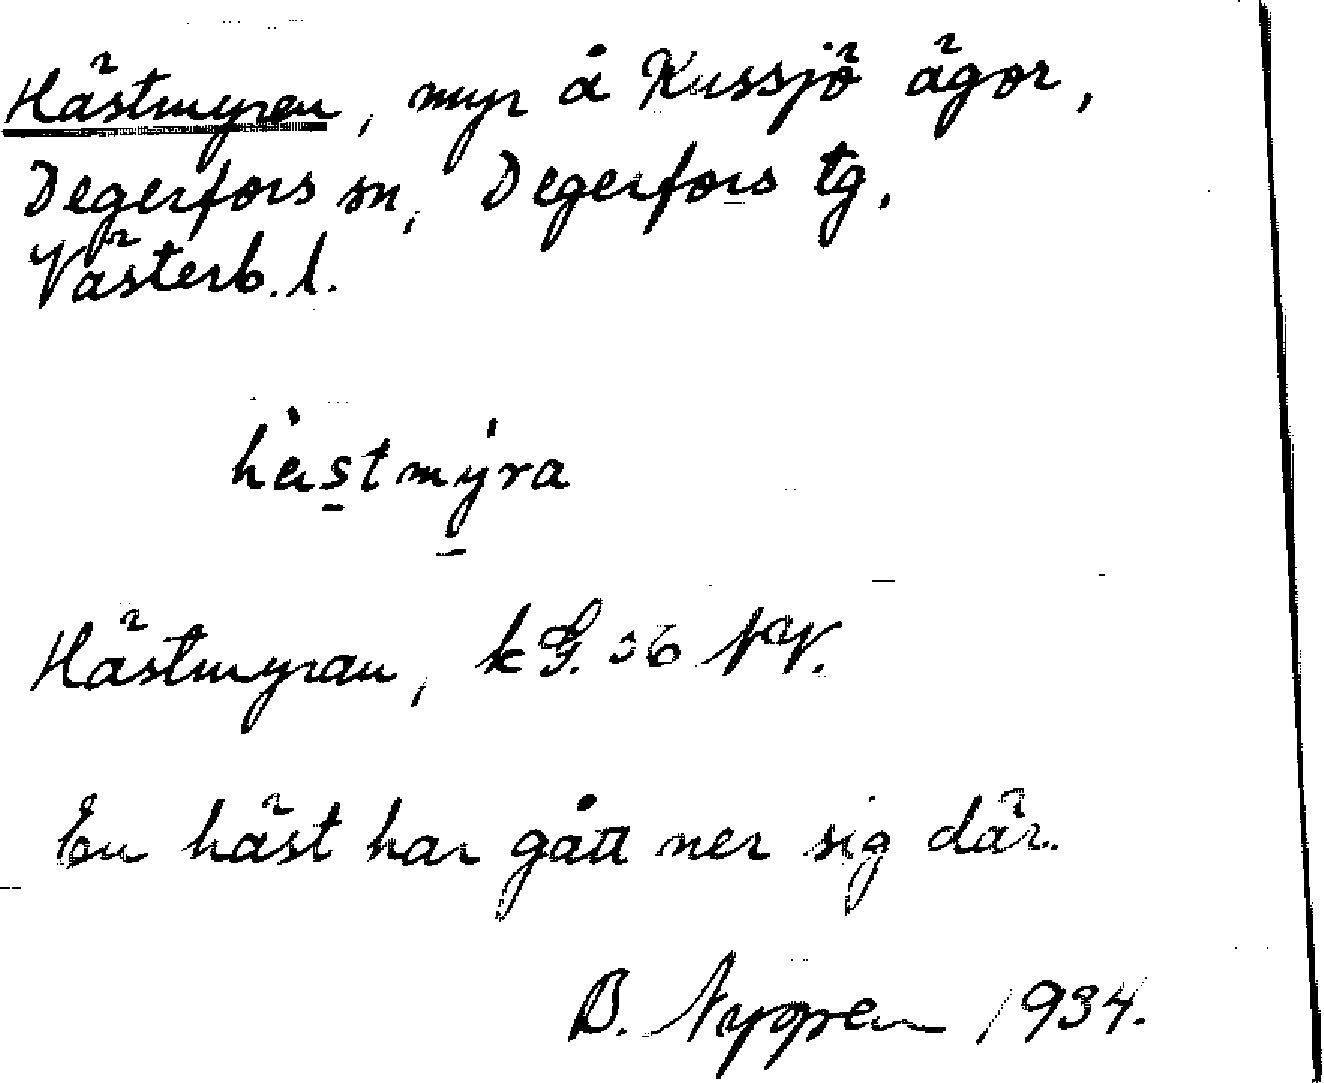 Hästmyren, myr å Kussjö ägor,
Degerfors sn, Degerfors tg,
Västerb. l.
hästmyra
Hästmyran, kG. 36 NV.
En häst har gått ner sig där.
B. Nygren 1934.